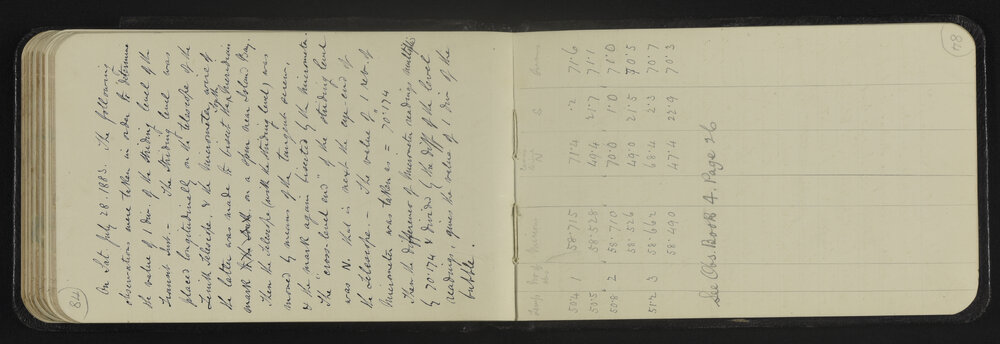 84
On Sat July 28. 1883. The following
observations were taken in order to determine
the value of 1 div. of the striding level of the
transit inst. - The striding level was
placed longitudinally on the telescope of the
Zenith Telescope. & the micrometer wire of
the latter was made to bisect the meridian
mark to the South on a spur near Island Bay.
Then the telescope (with the striding level) was
moved by means of the tangent screw,
& the mark again bisected by the micrometer.
The "cross-level end" of the striding level
was N. that is next the eye-end of
the telescope. - The value of 1 rev. of
Micrometer was taken as = 70".174
Then the difference of Micrometer readings multiplied
by 70".174 & divided by the diff. of the level
readings, gives the value of 1 div of the
bubble.
84
Temp No of Microm N S
50.4 1 58.715 71.4 .2 71.6
50.5 58.528 49.4 21.7 71.1
50.8 2 58.710 70.0 1.0 71.0
58.526 49.0 21.5 70.5
51.2 3 58.662 68.4 2.3 70.7
58.490 47.4 22.9 70.3
See Obs Book 4. Page 26